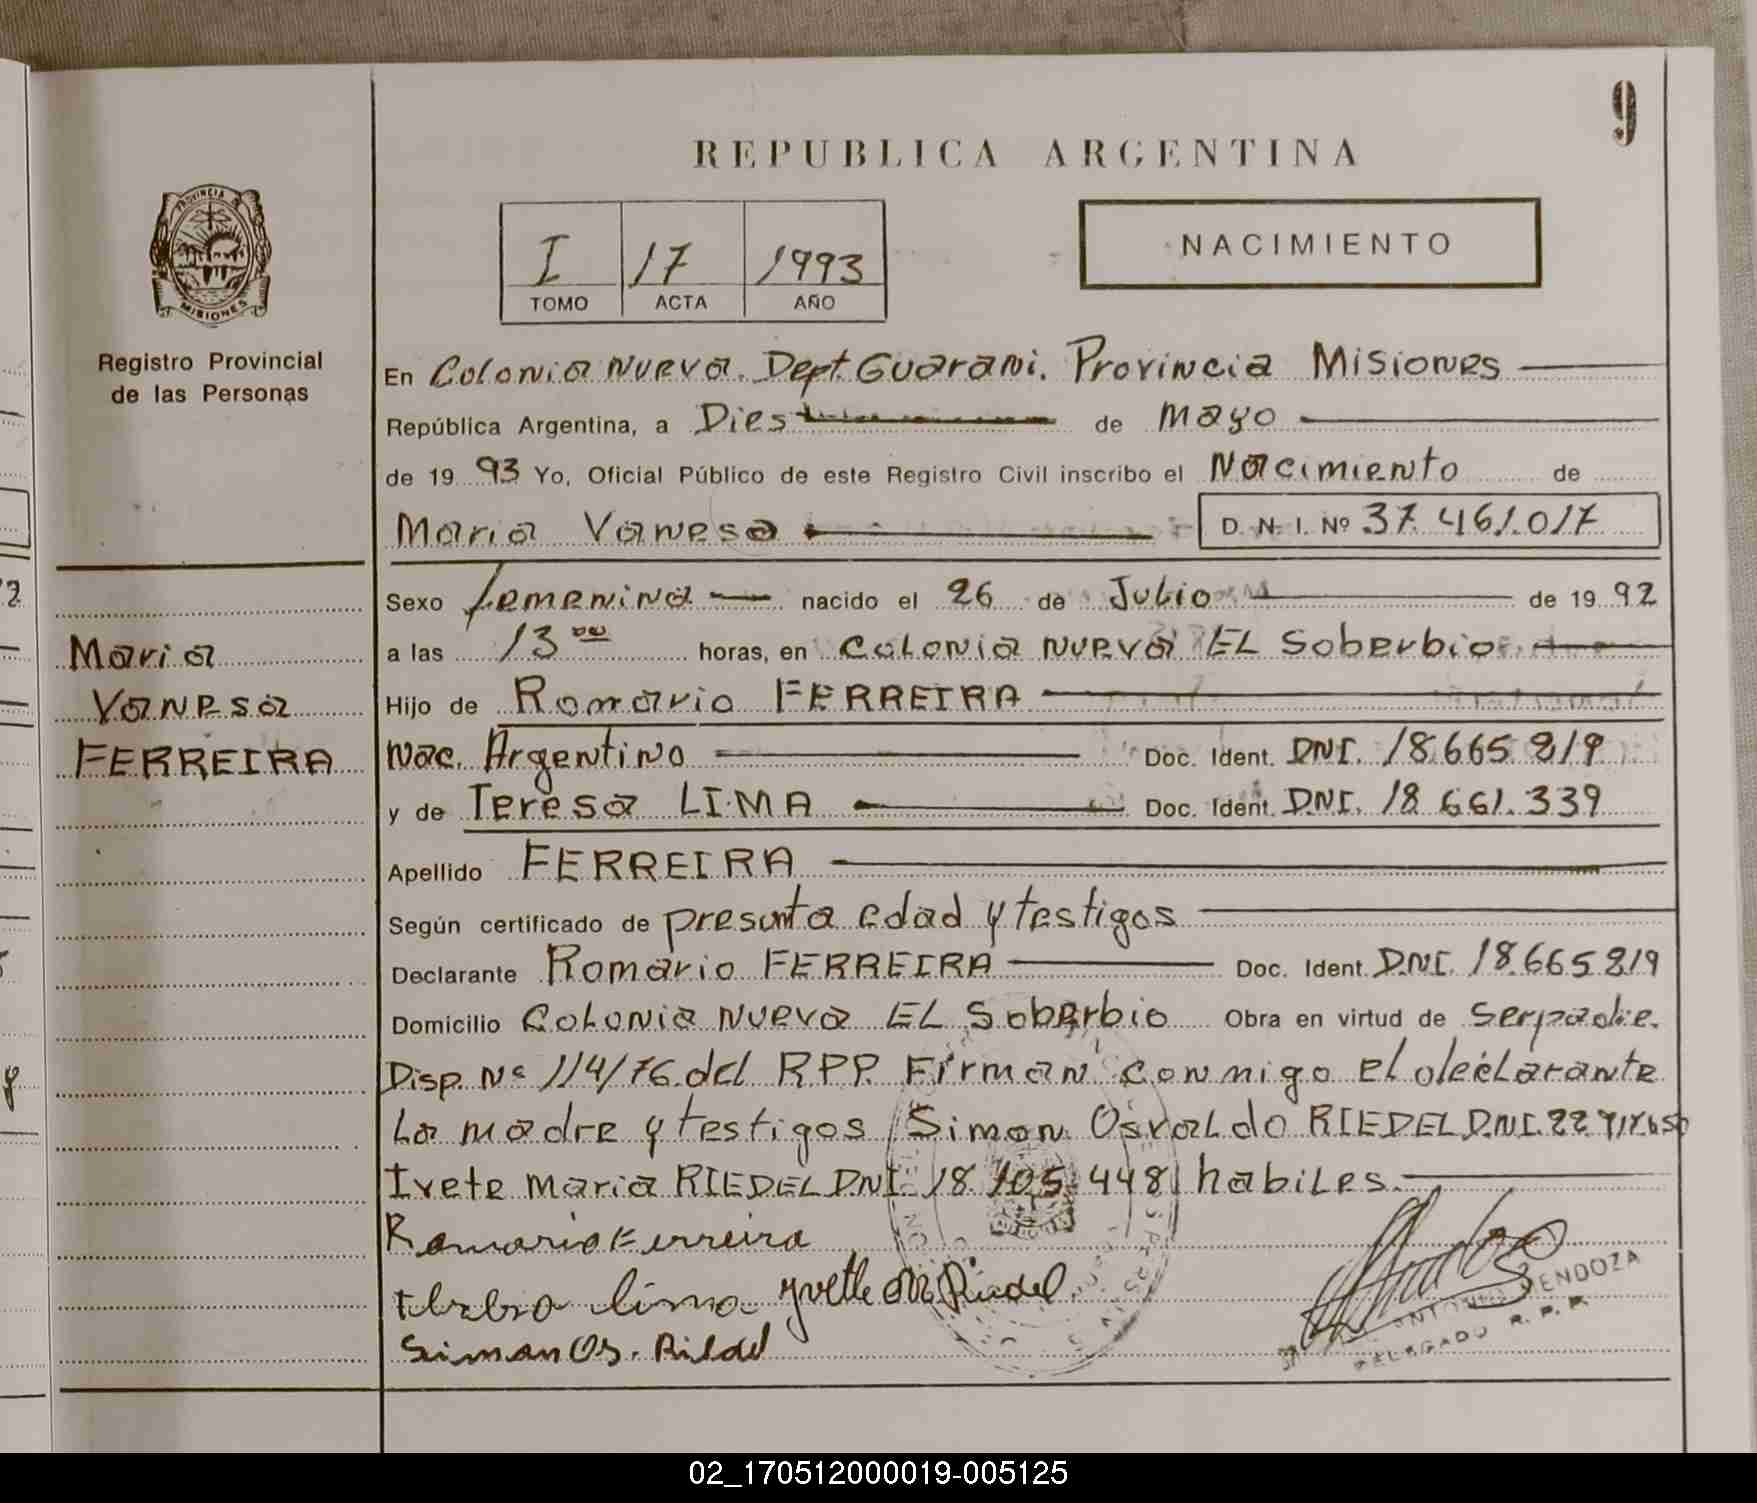 9
REPUBLICA ARGENTINA
I 17 1993
TOMO ACTA AÑO
NACIMIENTO
PROVINCIA DE
MISIONES
Registro Provincial
de las Personas
Maria
Vanesa
FERREIRA
En Colonia Nueva. Dept. Guarani. Provincia Misiones
República Argentina, a Dies de Mayo
de 19 93 Yo, Oficial Público de este Registro Civil inscribo el Nacimiento de
Maria Vanesa D. N. I. Nº 37.461.017
Sexo femenina nacido el 26 de Julio de 19 92
a las 13 00 horas, en Colonia Nueva EL Soberbio
Hijo de Romario FERREIRA
Nac. Argentino Doc. Ident. DNI. 18.665.819
y de Teresa LIMA Doc. Ident. D.N.I. 18.661.339
Apellido FERREIRA
Según certificado de presunta edad y testigos
Declarante Romario FERREIRA Doc. Ident. D.N.I. 18.665.819
Domicilio Colonia Nueva EL Soberbio Obra en virtud de ser padre.
Disp. Nº 114/76 del RPP. Firman conmigo el declarante
La madre y testigos Simon Osvaldo RIEDEL D.N.I. 22.
Ivete Maria RIEDEL D.N.I. 18.105.448 habiles.
Romario Ferreira
lima yvette M. Riedel
Siman Os. Rildel
ANTONIO MENDOZA
DELEGADO R. P. P.
02_170512000019-005125